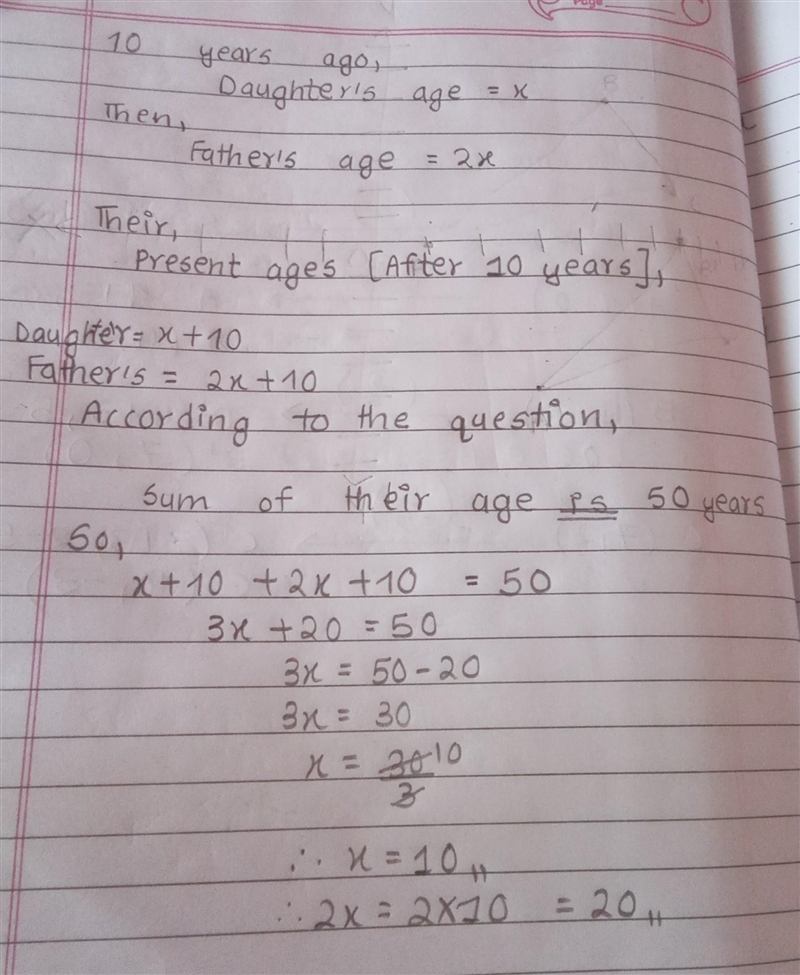 Page
10 years ago,
Daughter's age = x
Then,
Father's age = 2x
Their,
Present ages [After 10 years],
Daughter = x + 10
Father's = 2x + 10
According to the question,
Sum of their age is 50 years
So,
x + 10 + 2x + 10 = 50
3x + 20 = 50
3x = 50 - 20
3x = 30
x = 30 10
3
∴ x = 10,,
∴ 2x = 2x10 = 20,,